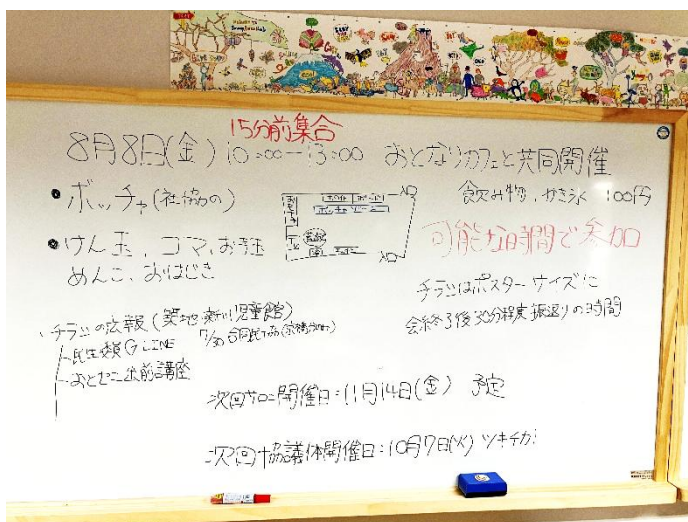 15分前集合
8月8日(金) 10:00ー13:00 おとなりカフェと共同開催
• ボッチャ(社協の)
飲み物、かき氷 100円
• けん玉、コマ、お手玉
めんこ、おはじき
入口
入口
可能な時間で参加
チラシはポスターサイズに
会終了後30分程度振返りの時間
・チラシの広報(築地 新川児童館)
7/30 合同民
民生 G LINE
出前講座
次回サロン開催日:11月14日(金) 予定
次回協議体開催日:10月7日(火) ツキチカ!